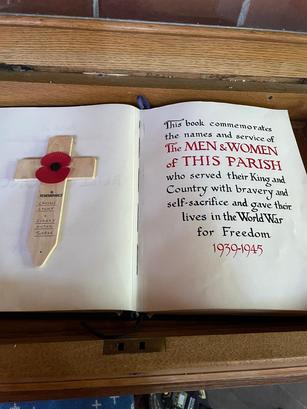 IN
REMEMBRANCE
This book commemorates
the names and service of
The MEN & WOMEN
of THIS PARISH
who served their King and
Country with bravery and
self-sacrifice and gave their
lives in the World War
for Freedom
1939-1945